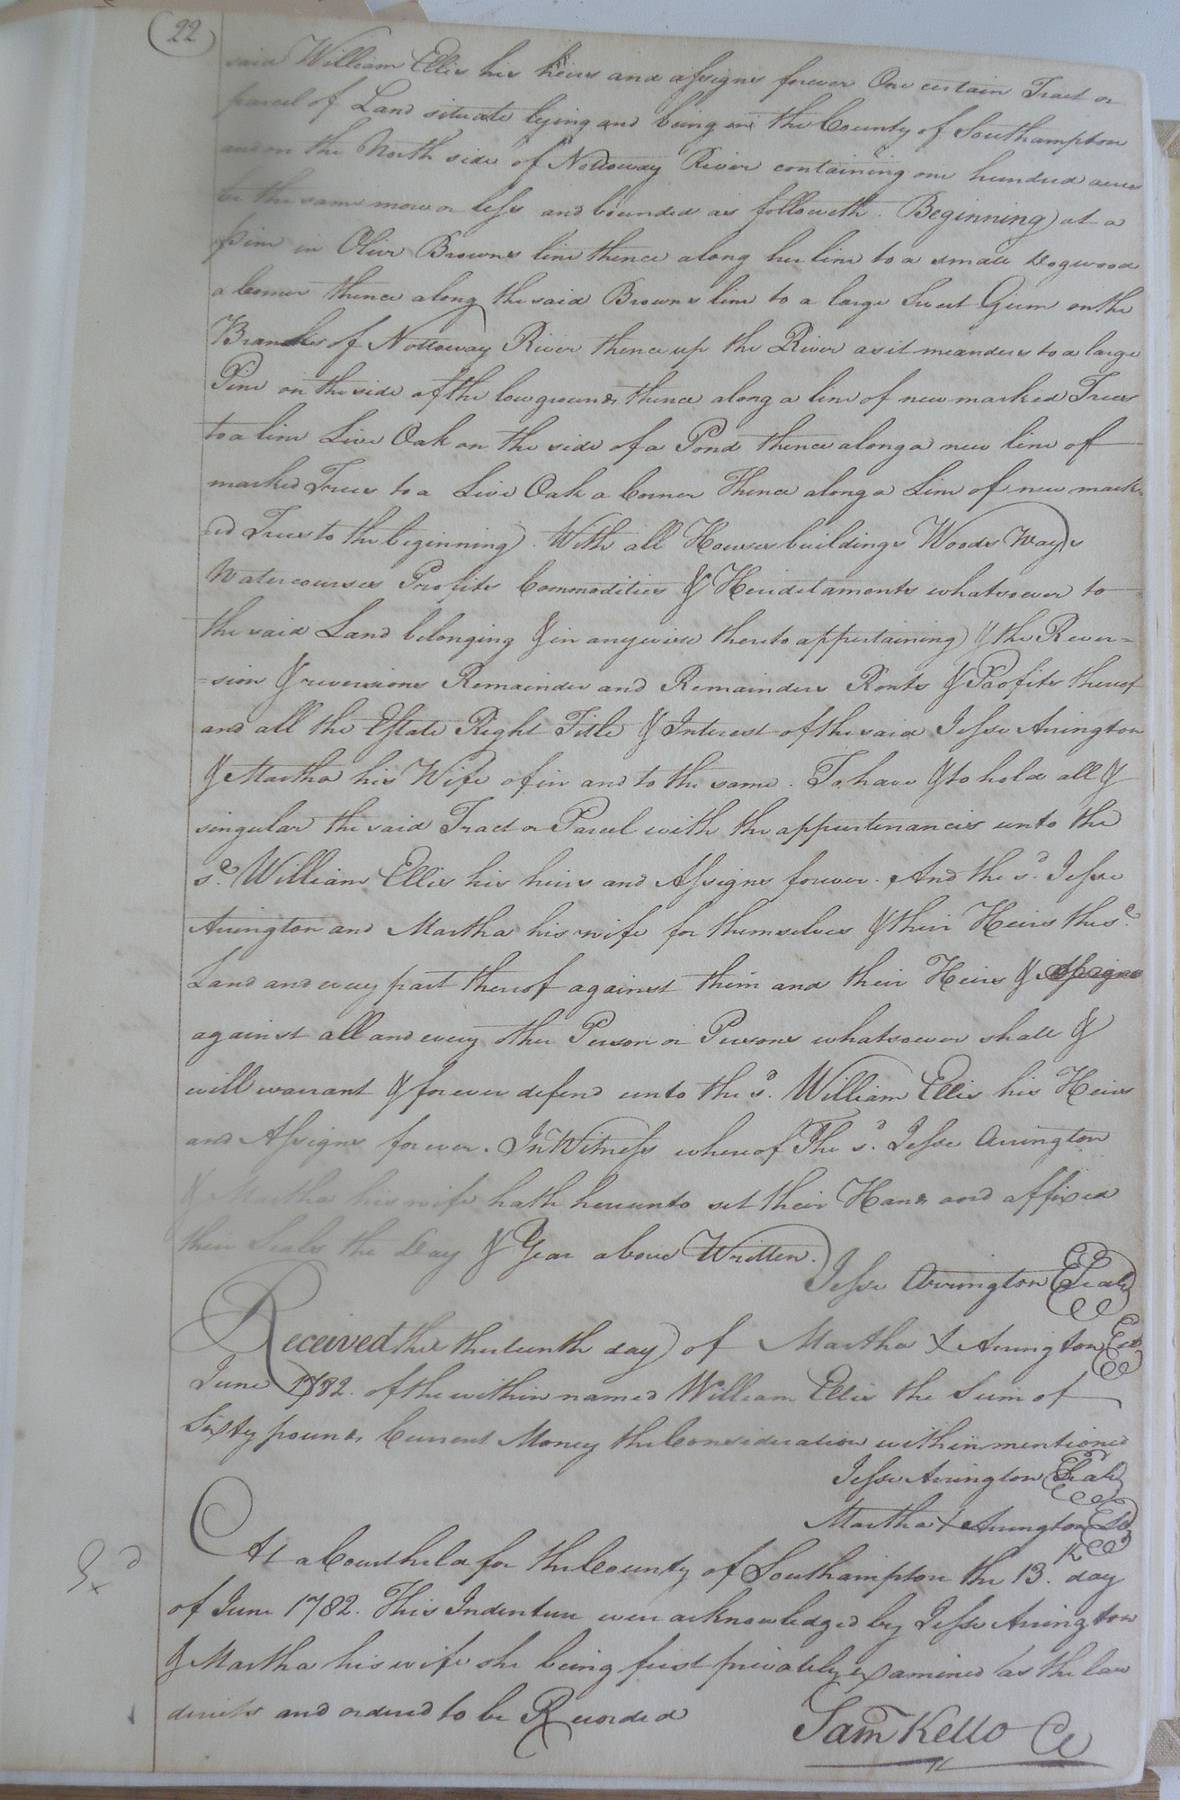 22
said William Ellis his heirs and assigns forever One certain Tract or
parcel of Land situate lying and being in the County of Southampton
and on the North side of Nottoway River containing one hundred acres
be the same more or less and bounded as followeth. Beginning at a
pine in Oliver Browns line thence along her line to a small Dogwood
a Corner thence along the said Browns line to a large Sweet Gum on the
Branches of Nottoway River thence up the River as it meanders to a large
Pine on the side of the low grounds thence along a line of new marked Trees
to a line Live Oak on the side of a Pond thence along a new line of
marked Trees to a Live Oak a Corner Thence along a Line of new mark-
ed Trees to the beginning. With all Houses buildings Woods Ways
Watercourses Profits Commodities & Heriditaments whatsoever to
the said Land belonging & in anywise thereto appertaining & the Rever=
=sion & reversions Remainder and Remainders Rents & Profits thereof
and all the Estate Right Title & Interest of the said Jesse Arrington
& Martha his Wife of in and to the same. To have & to hold all &
singular the said Tract or Parcel with the appurtenances unto the
sd. William Ellis his heirs and Assigns forever. And the sd. Jesse
Arrington and Martha his wife for themselves & their Heirs the sd.
Land and every part thereof against them and their Heirs & Assigns
against all and every other Person or Persons whatsoever shall &
will warrant & forever defend unto the sd. William Ellis his Heirs
and Assigns forever. In Witness whereof The sd. Jesse Arrington
& Martha his wife hath hereunto set their Hands and affixed
their Seals the Day & Year above Written.
Jesse Arrington Seal
Received the thirteenth day of Martha X Arrington
June 1782. of the within named William Ellis the Sum of
Sixty pounds Current Money the Consideration within mentioned
Jesse Arrington Seal
Martha X Arrington
At a Court held for the County of Southampton the 13th. day
of June 1782. This Indenture were acknowledged by Jesse Arrington
& Martha his wife she being first privately examined as the law
directs and ordered to be Recorded
Sam Kello CC
Exd